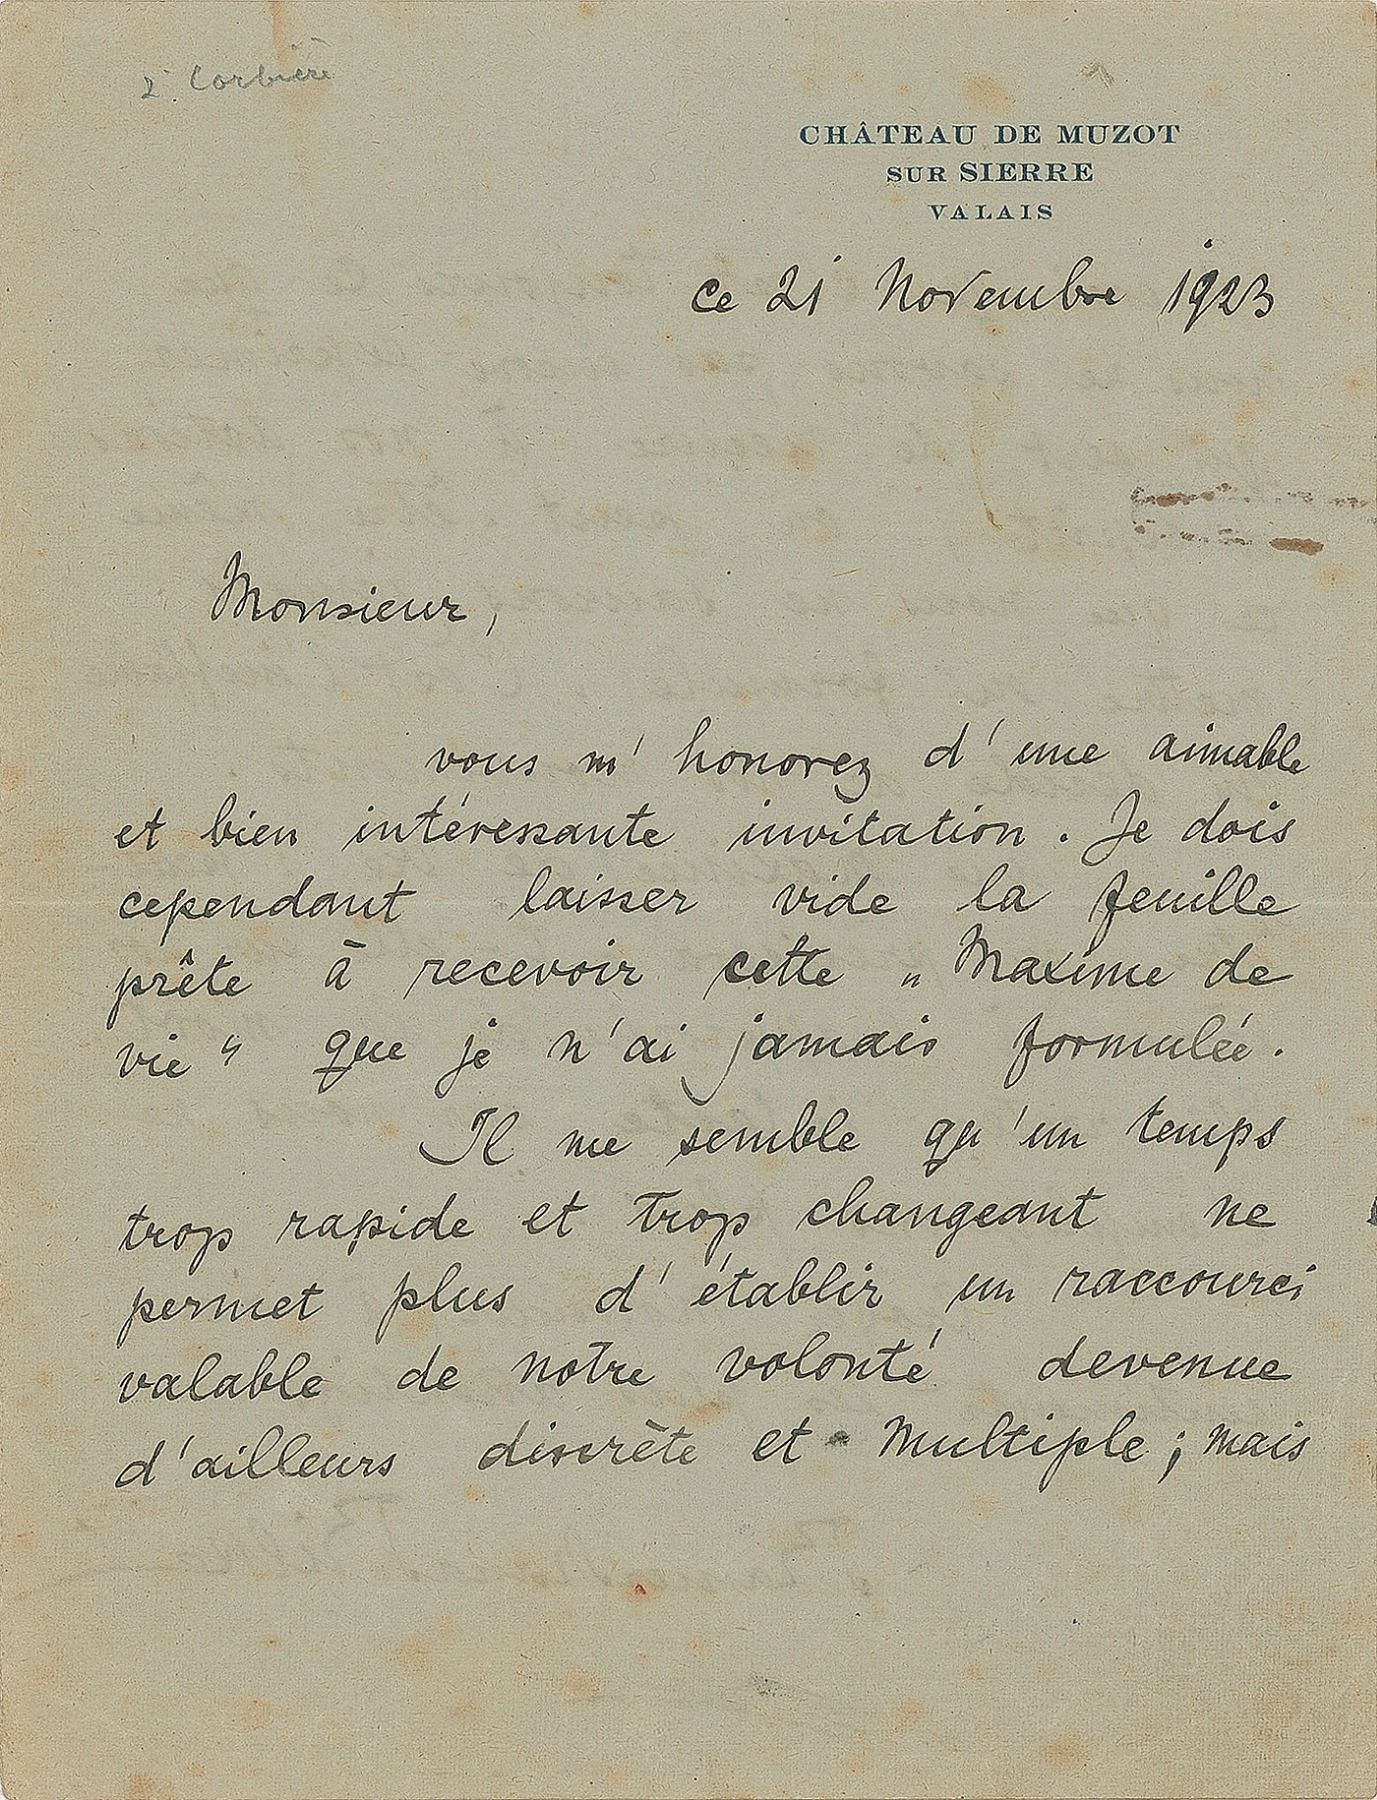 2. Corbière
CHÂTEAU DE MUZOT
SUR SIERRE
VALAIS
ce 21 Novembre 1923
Monsieur,
vous m'honorez d'une aimable
et bien intéressante invitation. Je dois
cependant laisser vide la feuille
prête à recevoir cette „Maxime de
vie" que je n'ai jamais formulée.
Il me semble qu'un temps
trop rapide et trop changeant ne
permet plus d'établir un raccourci
valable de notre volonté devenue
d'ailleurs discrète et multiple; mais